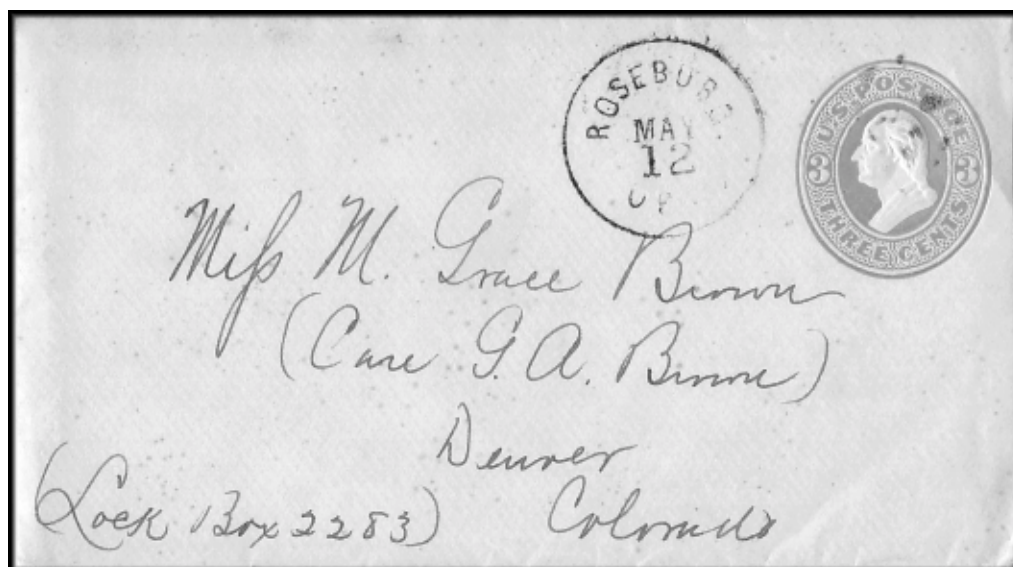 ROSEBURG
MAY
12
U.S. POSTAGE
3 3
THREE CENTS
Miss M. Grace Brown
(Care G. A. Brown)
Denver
Colorado
(Lock Box 2283)